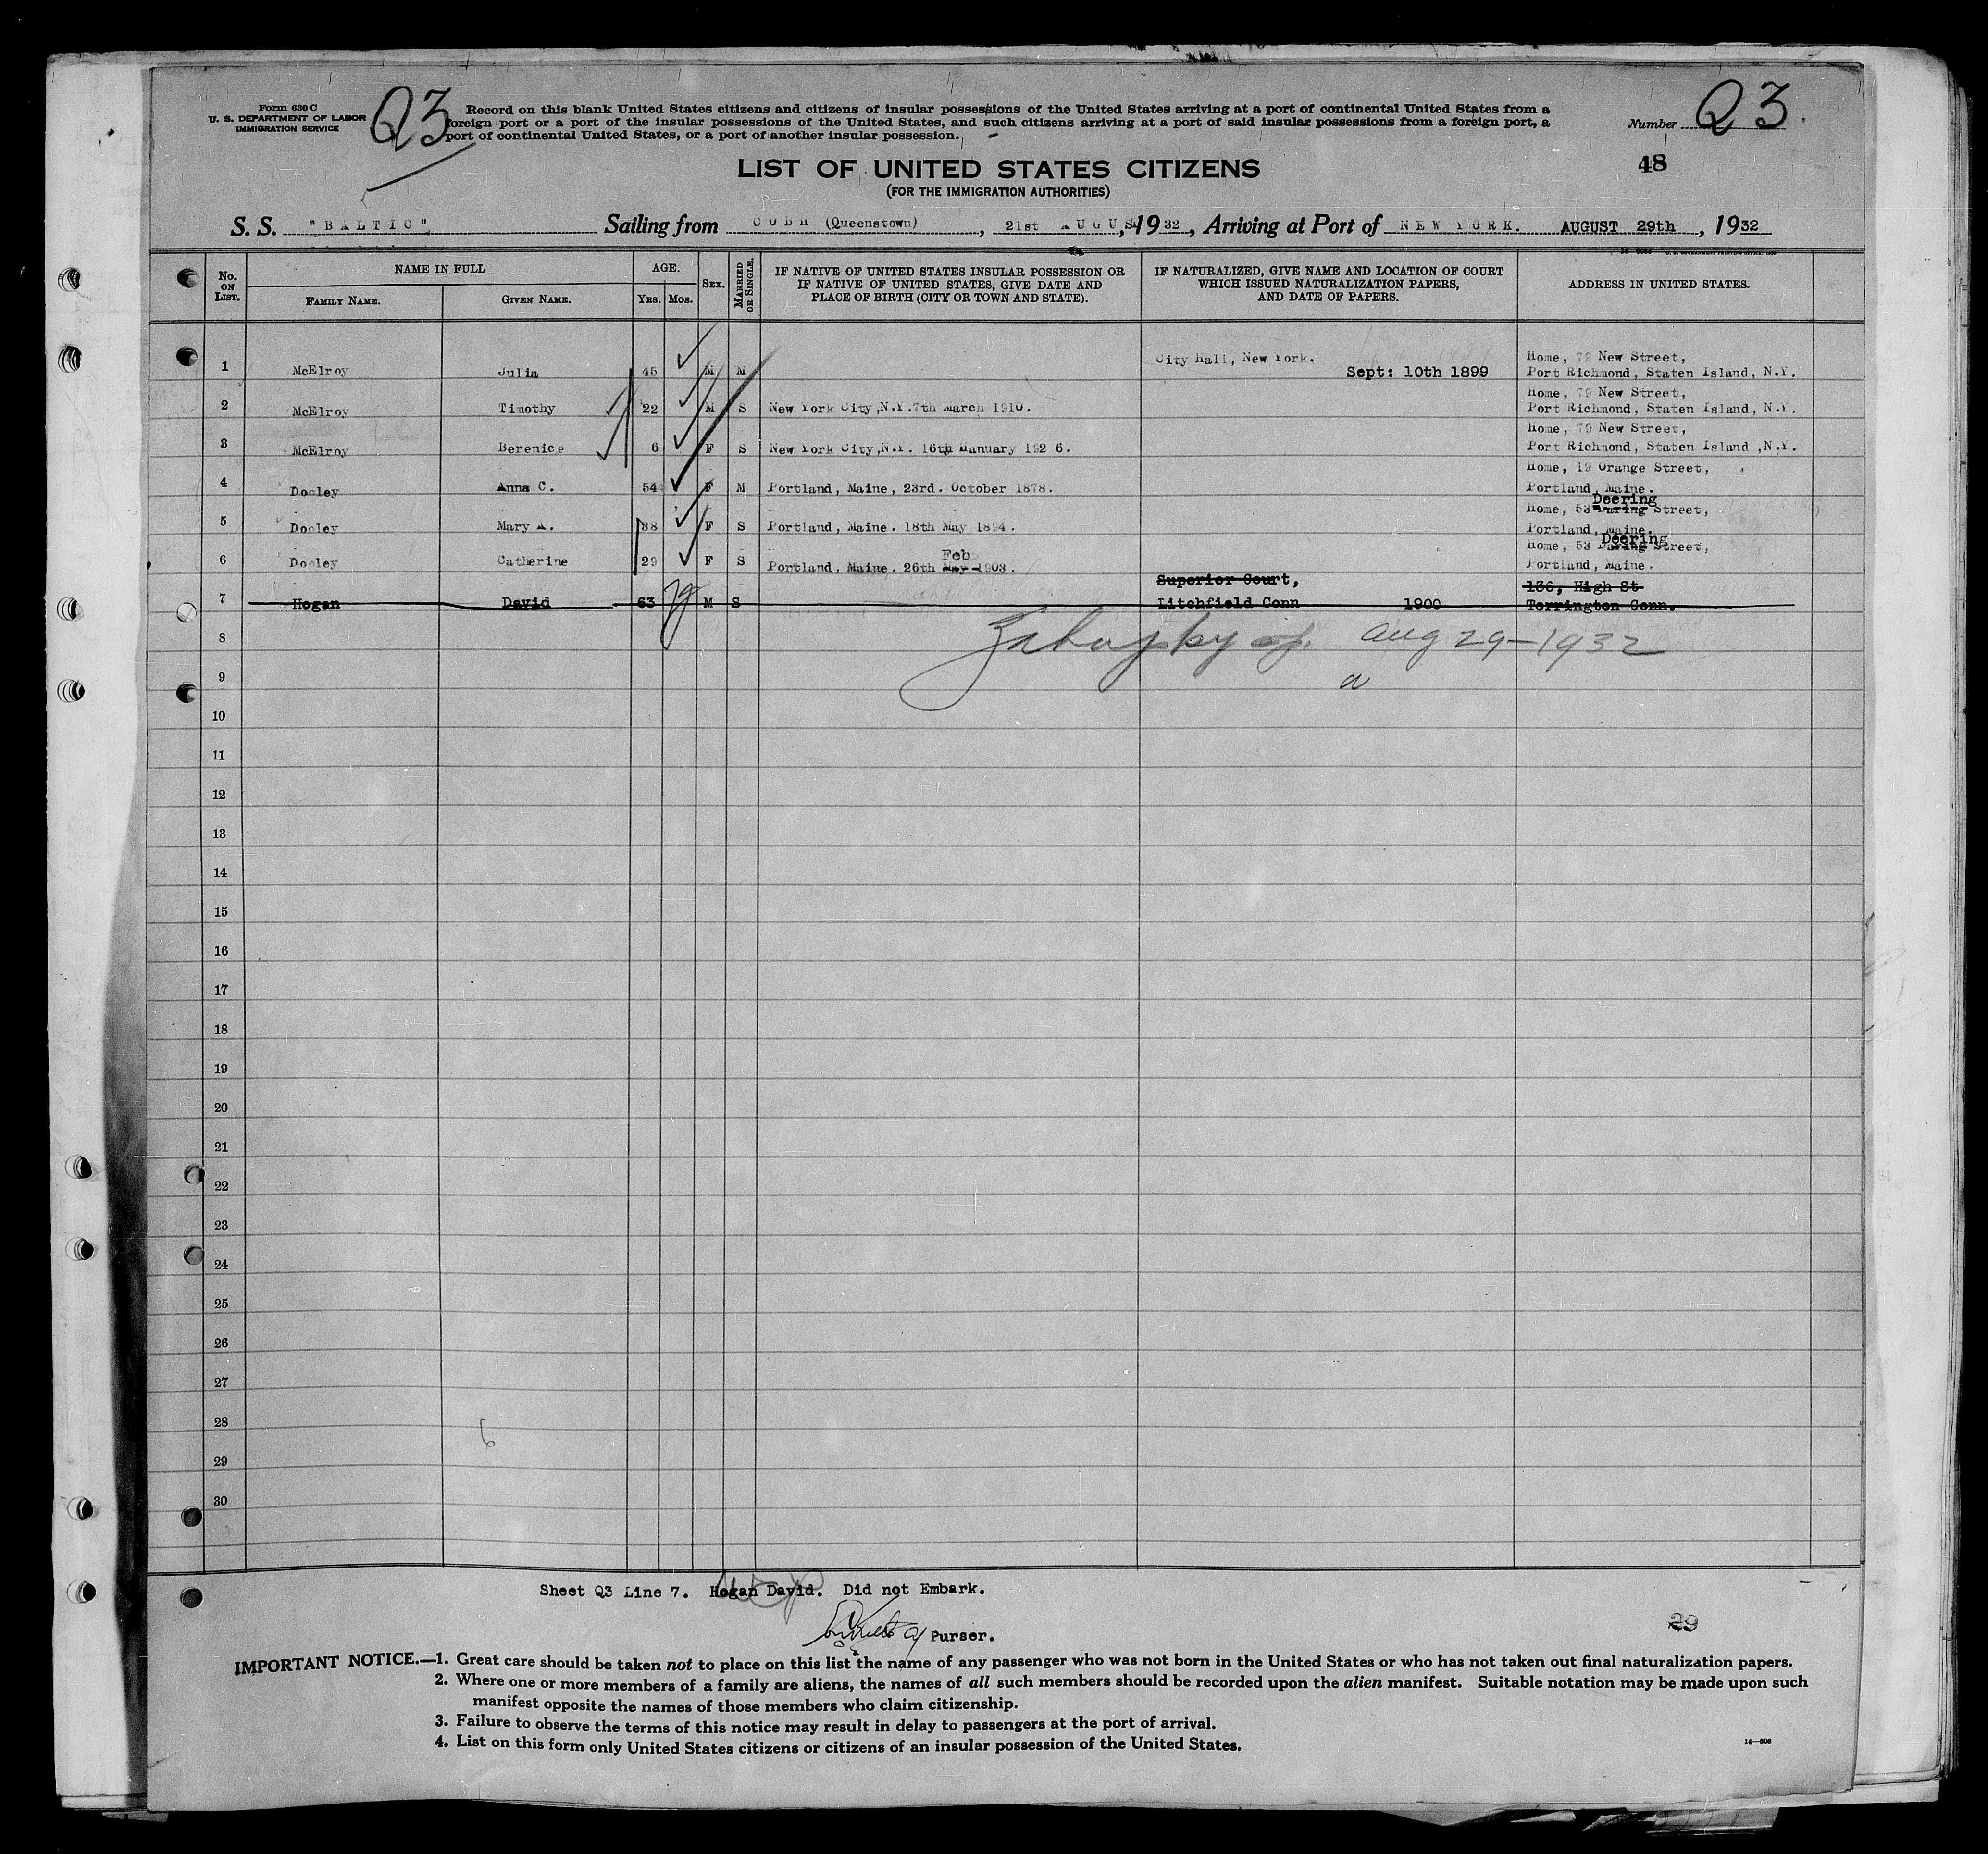 Form 630 C
U. S. DEPARTMENT OF LABOR
IMMIGRATION SERVICE
Q3
Record on this blank United States citizens and citizens of insular possessions of the United States arriving at a port of continental United States from a
foreign port or a port of the insular possessions of the United States, and such citizens arriving at a port of said insular possessions from a foreign port, a
port of continental United States, or a port of another insular possession.
Number Q3
LIST OF UNITED STATES CITIZENS
48
(FOR THE IMMIGRATION AUTHORITIES)
S. S. "BALTIC", Sailing from COBH (Queenstown), 21st AUGUS, 1932, Arriving at Port of NEW YORK. AUGUST 29th, 1932
No. ON LIST. NAME IN FULL FAMILY NAME. GIVEN NAME. AGE. YRS. MOS. SEX. MARRIED OR SINGLE.
IF NATIVE OF UNITED STATES INSULAR POSSESSION OR
IF NATIVE OF UNITED STATES, GIVE DATE AND
PLACE OF BIRTH (CITY OR TOWN AND STATE).
IF NATURALIZED, GIVE NAME AND LOCATION OF COURT
WHICH ISSUED NATURALIZATION PAPERS,
AND DATE OF PAPERS.
ADDRESS IN UNITED STATES.
City Hall, New York. Home, 79 New Street,
1 McElroy Julia 45 M M Sept: 10th 1899 Port Richmond, Staten Island, N.Y.
Home, 79 New Street,
2 McElroy Timothy 22 M S New York City,N.Y.7th March 1910. Port Richmond, Staten Island, N.Y.
Home, 79 New Street,
3 McElroy Berenice 6 F S New York City,N.Y. 16th Hanuary 192 6. Port Richmond, Staten Island ,N.Y.
Home, 19 Orange Street,
4 Dooley Anna C. 54 F M Portland, Maine, 23rd. October 1878. Portland, Maine.
Deering
Home, 53 Daring Street,
5 Dooley Mary A. 38 F S Portland, Maine. 18th May 1894. Portland, Maine.
Deering
Home, 53 Daring Street,
Feb
6 Dooley Catherine 29 F S Portland, Maine. 26th May 1903. Portland, Maine.
Superior Court, 136, High St
7 Hogan David 63 M S Litchfield Conn 1900 Torrington Conn.
8 Aug 29-1932
9
10
11
12
13
14
15
16
17
18
19
20
21
22
23
24
25
26
27
28
6
29
30
Sheet Q3 Line 7. Hogan David. Did not Embark.
Purser.
29
IMPORTANT NOTICE.—1. Great care should be taken not to place on this list the name of any passenger who was not born in the United States or who has not taken out final naturalization papers.
2. Where one or more members of a family are aliens, the names of all such members should be recorded upon the alien manifest. Suitable notation may be made upon such
manifest opposite the names of those members who claim citizenship.
3. Failure to observe the terms of this notice may result in delay to passengers at the port of arrival.
4. List on this form only United States citizens or citizens of an insular possession of the United States.
14—608